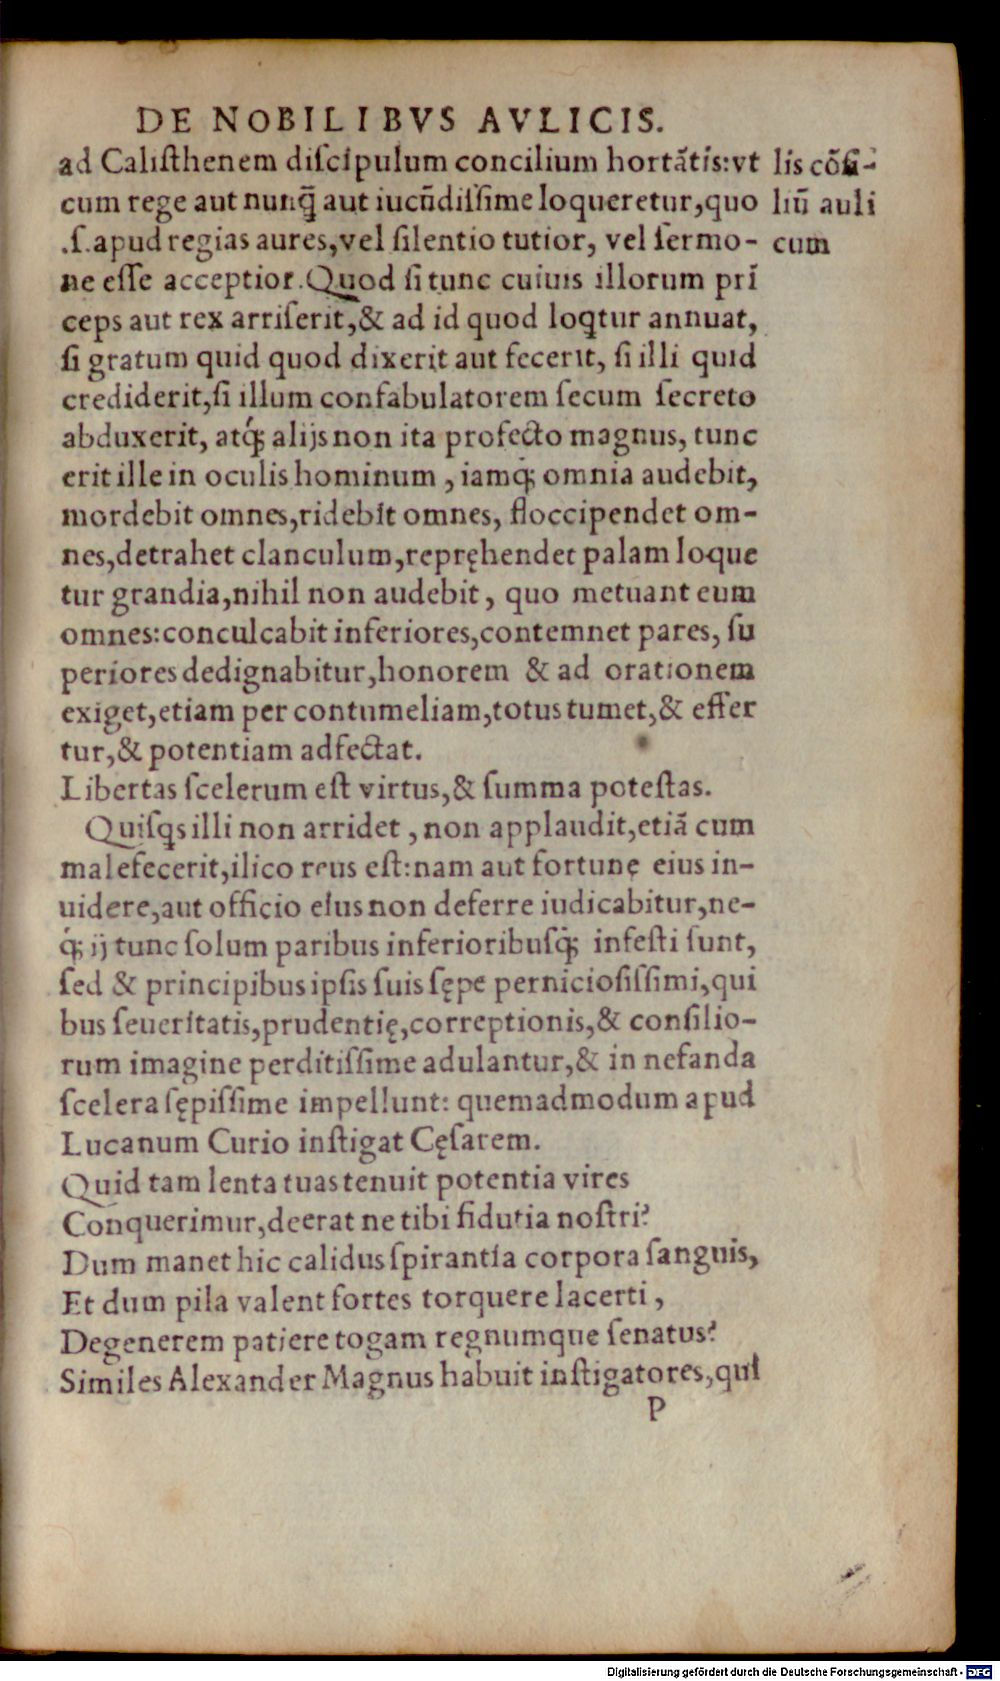 DE NOBILIBVS AVLICIS.
ad Calisthenem discipulum concilium hortātis:vt
cum rege aut nunq̄ aut iucūdissime loqueretur,quo
.s.apud regias aures,vel silentio tutior, vel sermo-
ne esse acceptior.Quod si tunc cuiuis illorum prī
ceps aut rex arriserit,& ad id quod loq̄tur annuat,
si gratum quid quod dixerit aut fecerit, si illi quid
crediderit,si illum confabulatorem secum secreto
abduxerit, atq́; alijs non ita profecto magnus, tunc
erit ille in oculis hominum , iamq́; omnia audebit,
mordebit omnes,ridebit omnes, floccipendet om-
nes,detrahet clanculum,repręhendet palam loque
tur grandia,nihil non audebit, quo metuant eum
omnes:conculcabit inferiores,contemnet pares, su
periores dedignabitur,honorem & ad orationem
exiget,etiam per contumeliam,totus tumet,& effer
tur,& potentiam adfectat.
Libertas scelerum est virtus,& summa potestas.
Quisq̄s illi non arridet , non applaudit,etiā cum
malefecerit,ilico reus est:nam aut fortunę eius in-
uidere,aut officio eius non deferre iudicabitur,ne-
q́; ij tunc solum paribus inferioribusq́; infesti sunt,
sed & principibus ipsis suis sępe perniciosissimi,qui
bus seueritatis,prudentię,correptionis,& consilio-
rum imagine perditissime adulantur,& in nefanda
scelera sępissime impellunt: quemadmodum apud
Lucanum Curio instigat Cęsarem.
Quid tam lenta tuas tenuit potentia vires
Conquerimur,deerat ne tibi fidutia nostri?
Dum manet hic calidus spirantia corpora sanguis,
Et dum pila valent fortes torquere lacerti ,
Degenerem patiere togam regnumque senatus?
Similes Alexander Magnus habuit instigatores,qui
P
lis cōsi-
liū auli
cum
Digitalisierung gefördert durch die Deutsche Forschungsgemeinschaft - DFG